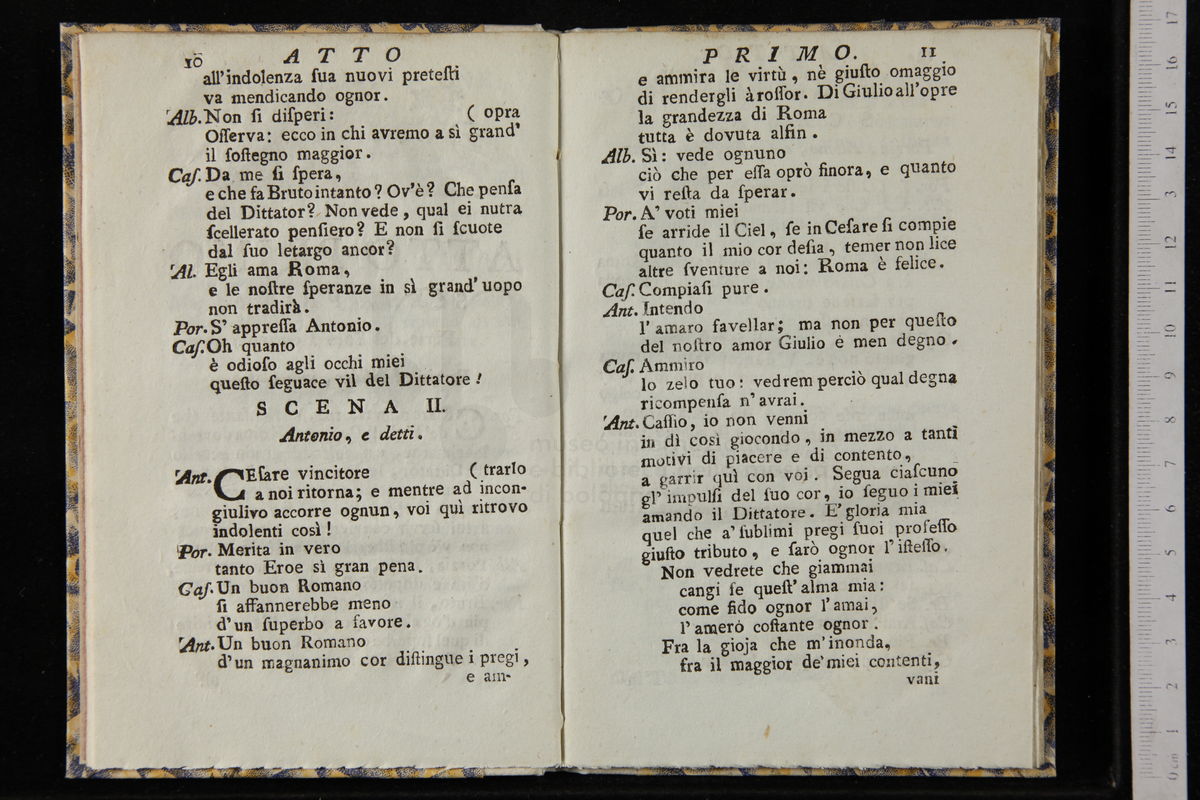 10 ATTO
all'indolenza ſua nuovi preteſti
va mendicando ognor.
Alb. Non ſi diſperi: ( opra
Oſſerva: ecco in chi avremo a sì grand'
il ſoſtegno maggior.
Caſ. Da me ſi ſpera,
e che fa Bruto intanto? Ov'è? Che penſa
del Dittator? Non vede, qual ei nutra
ſcellerato penſiero? E non ſi ſcuote
dal ſuo letargo ancor?
Al. Egli ama Roma,
e le noſtre ſperanze in sì grand'uopo
non tradirà.
Por. S' appreſſa Antonio.
Caſ. Oh quanto
è odioſo agli occhi miei
queſto ſeguace vil del Dittatore!
SCENA II.
Antonio, e detti.
Ant. CEſare vincitore ( trarlo
a noi ritorna; e mentre ad incon-
giulivo accorre ognun, voi quì ritrovo
indolenti così!
Por. Merita in vero
tanto Eroe sì gran pena.
Caſ. Un buon Romano
ſi affannerebbe meno
d'un ſuperbo a favore.
Ant. Un buon Romano
d'un magnanimo cor diſtingue i pregi,
e am-
PRIMO. 11
e ammira le virtù, nè giuſto omaggio
di rendergli à roſſor. Di Giulio all'opre
la grandezza di Roma
tutta è dovuta alfin.
Alb. Sì: vede ognuno
ciò che per eſſa oprò finora, e quanto
vi reſta da ſperar.
Por. A' voti miei
ſe arride il Ciel, ſe in Ceſare ſi compie
quanto il mio cor deſia, temer non lice
altre ſventure a noi: Roma è felice.
Caſ. Compiaſi pure.
Ant. Intendo
l'amaro favellar; ma non per queſto
del noſtro amor Giulio è men degno.
Caſ. Ammiro
lo zelo tuo: vedrem perciò qual degna
ricompenſa n'avrai.
Ant. Caſſio, io non venni
in dì così giocondo, in mezzo a tanti
motivi di piacere e di contento,
a garrir quì con voi. Segua ciaſcuno
gl'impulſi del ſuo cor, io ſeguo i miei
amando il Dittatore. E' gloria mia
quel che a' ſublimi pregi ſuoi profeſſo
giuſto tributo, e ſarò ognor l'iſteſſo.
Non vedrete che giammai
cangi ſe queſt'alma mia:
come fido ognor l'amai,
l'amerò coſtante ognor.
Fra la gioja che m'inonda,
fra il maggior de'miei contenti,
vani